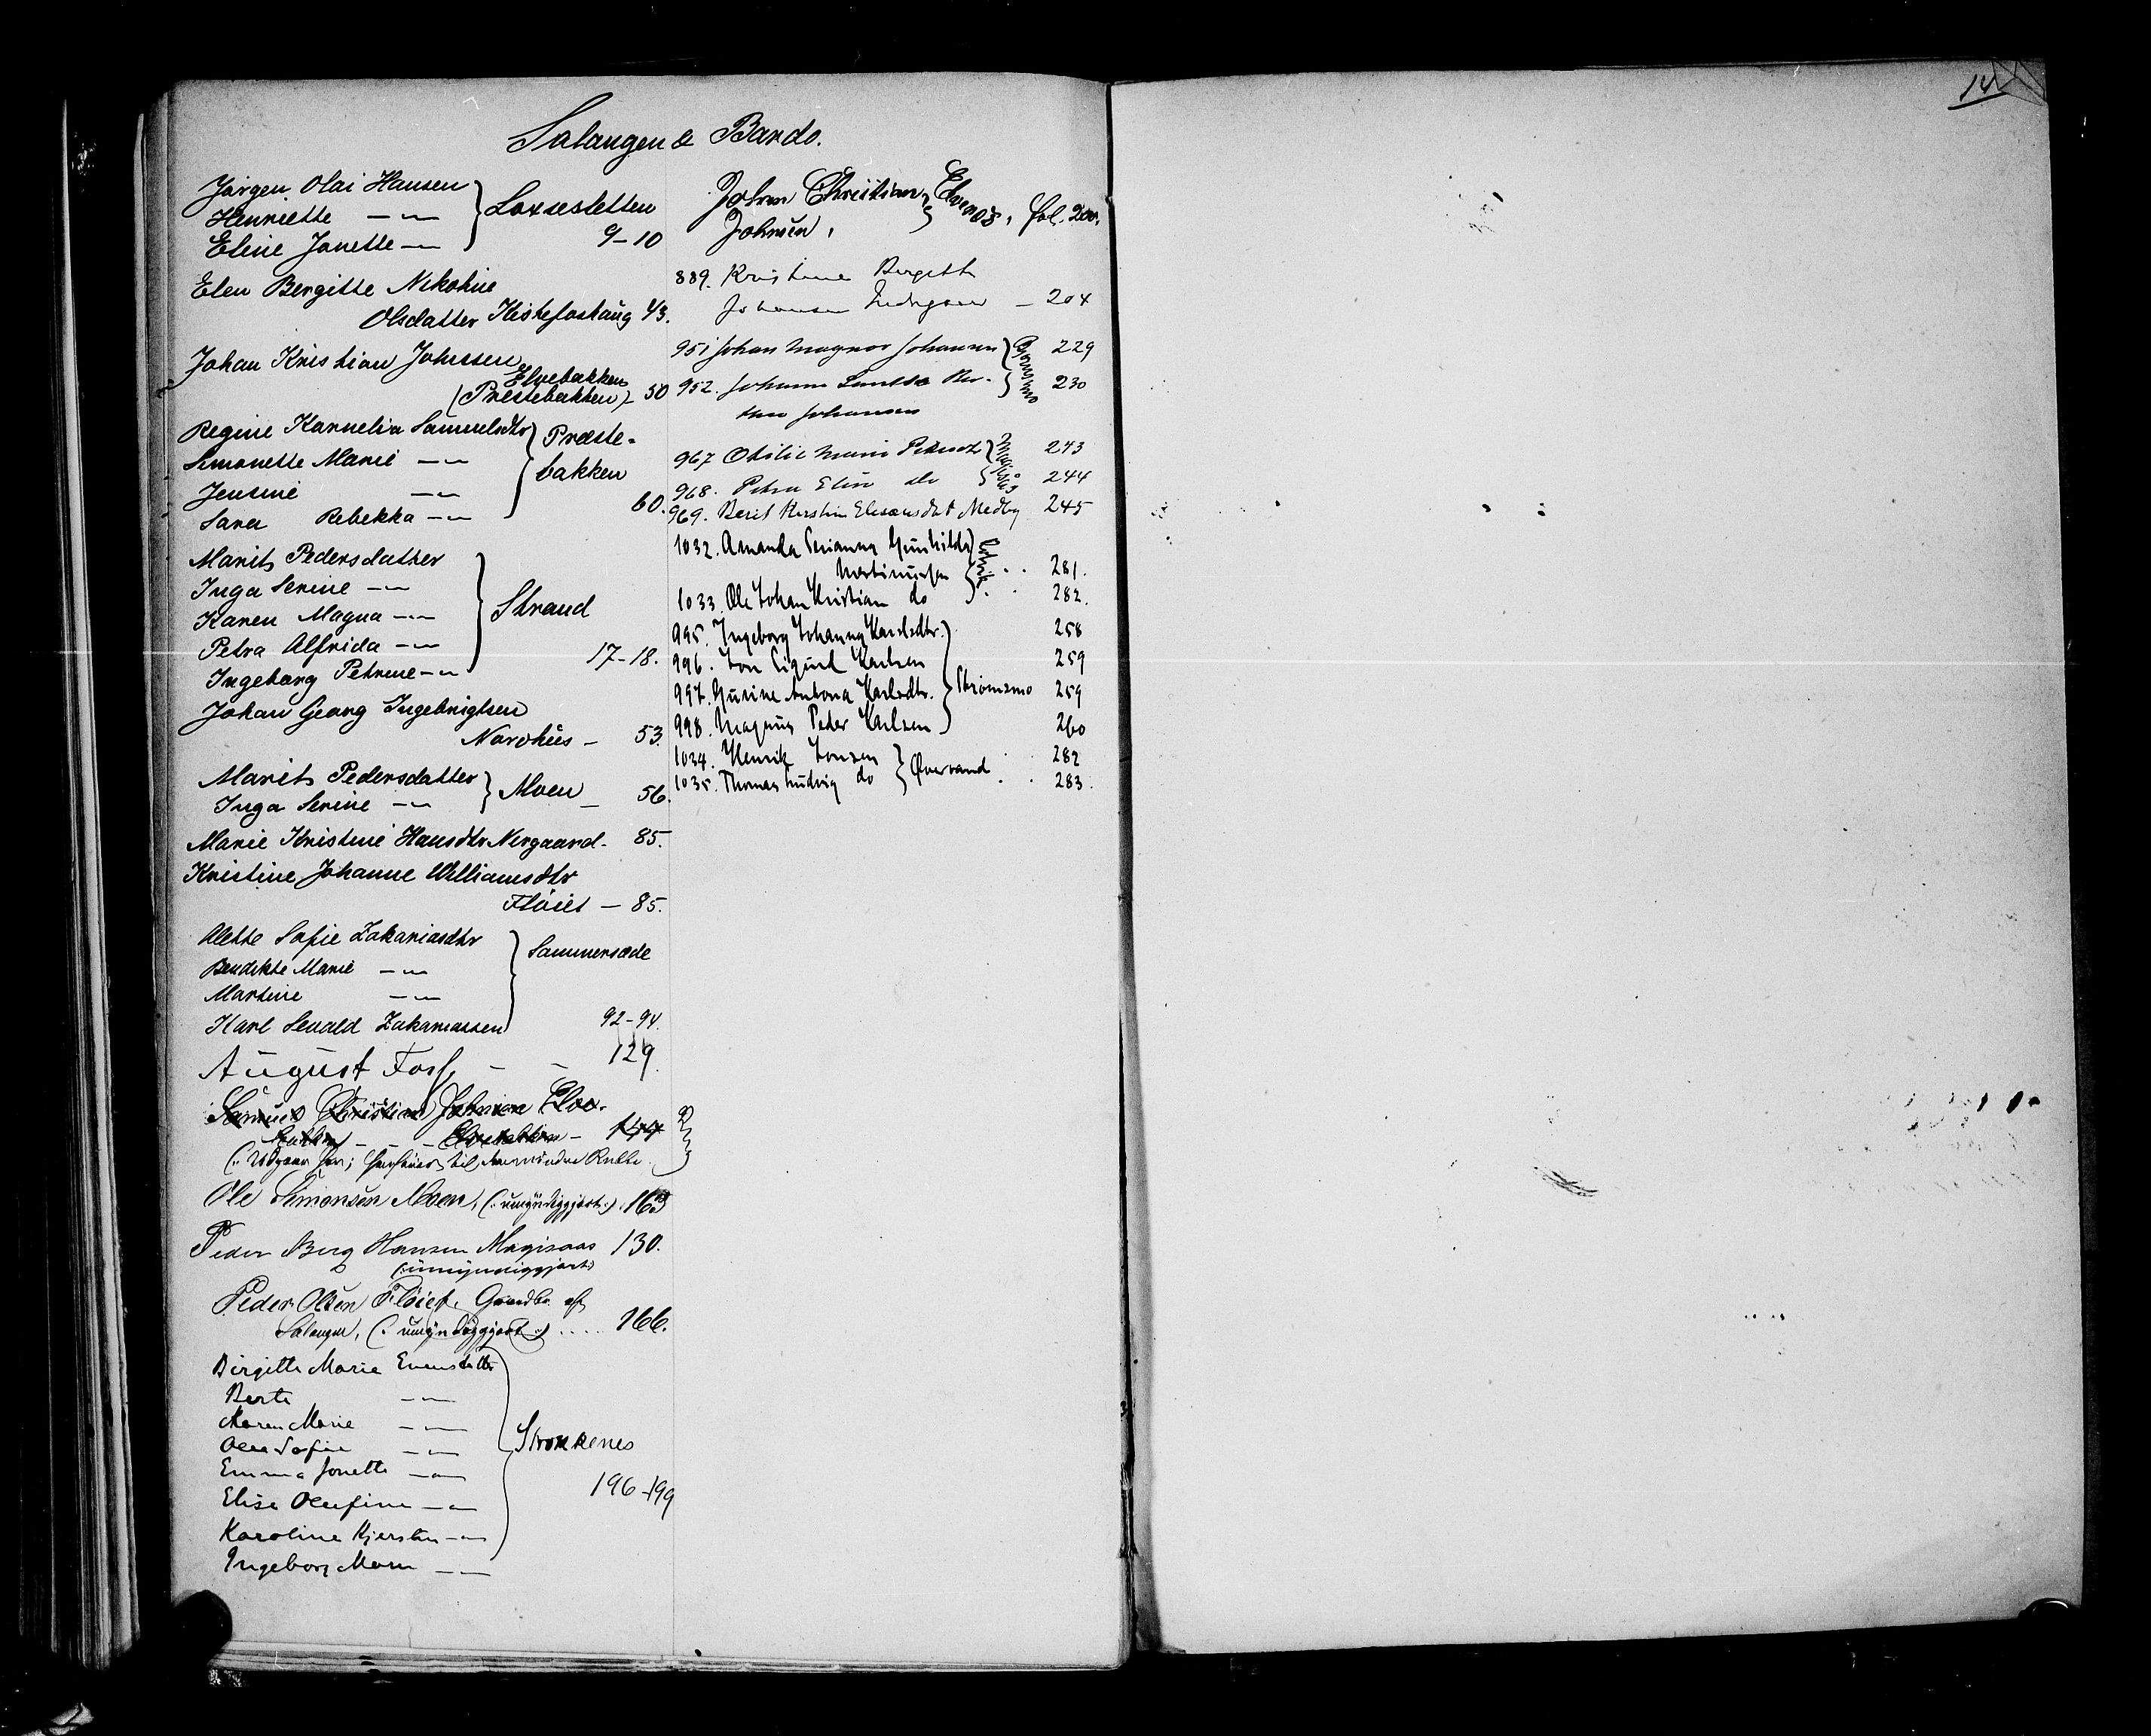 Salangen & Bardo.
Jørgen Olai Hansen
Henriette — " —
Eline Janette — " —
Laxsestetten
9-10
Elen Bergitte Nikoline
Olsdatter Kistefoshaug 43.
Johan Kristian Johnsen
Elvebakken
(Præstebakken) - 50
Regine Karnelia Samuelsdtr
Simonette Marie — " —
Jensine — " —
Sara Rebekka — " —
Præste-
bakken
60.
Marit Pedersdatter
Inga Serine — " —
Karen Magna — " —
Petra Alfrida — " —
Ingeborg Petrine — " —
Strand
17-18.
Johan Georg Ingebrigtsen
Narohus — 53.
Marit Pedersdatter
Inga Serine — " —
Moen — 56.
Marie Kristine Hansdtr Nergaard - 85.
Kristine Johanne Williamsdtr
Fløiet — 85.
Alette Sofie Zakariasdtr
Bendikte Marie — " —
Martine — " —
Karl Sevald Zakariassen
Sammersæde
92-94.
August Foss — — 129.
Samuel Christian Johnsen
Elvebakken — 144
Ole Simonsen Moen, (: umyndiggjort :) . 163
Peder Berg Hansen Magisaas 130.
(: umyndiggjort)
Peder Olsen Fløiet, Gaardbr. af
Salangen, (: umyndiggjort :) .... 166.
Birgitte Marie Evensdatter
Berte — " —
Maren Marie — " —
Olea Sofie — " —
Emma Jonette — " —
Elise Olufine — " —
Karoline Kjersten — " —
Ingeborg Marie — " —
Stroxenes
196-199
Johan Christian
Johnsen,
Elvenes, fol. 200.
889. Kristine Bergitte
Johansen — 204
951 Johan Magnor Johansen 229
952. Johanna 230
Johansen
967 Otilie Marie Pedersdtr 243
968. Petra Eline do 244
969. Berit Kerstine Eliseusdat Medby 245
1032. Amanda Perianna Gunhilda
Martinusen . . 281.
1033. Ole Johan Kristian do . 282.
995. Ingeborg Johanna Karlsdtr. 258
996. Jon Sigurd Karlsen 259
997. Gurine Antona Karlsdtr. Strømsmo 259
998. Magnus Peder Karlsen 260
1034. Henrik Jonsen . 282
1035. Thomas Ludvig do Øvervand . . 283.
14